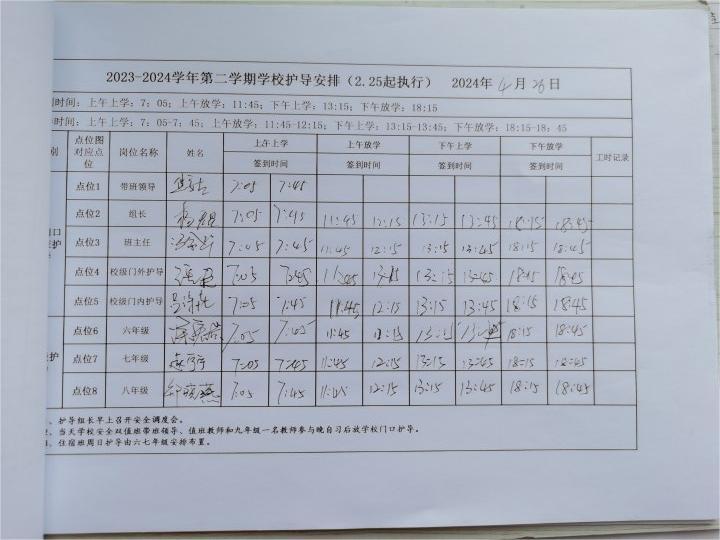 2023-2024学年第二学期学校护导安排（2.25起执行） 2024年 4 月 26 日
时间：上午上学：7：05；上午放学：11:45；下午上学：13:15；下午放学：18:15
时间：上午上学：7：05-7；45；上午放学：11:45-12:15；下午上学：13:15-13:45；下午放学：18:15-18：45
别 点位图对应点位 岗位名称 姓名 上午上学 上午放学 下午上学 下午放学 工时记录
签到时间 签到时间 签到时间 签到时间
点位1 带班领导 7:05 7:45
点位2 组长 7:05 7:45 11:45 12:15 13:15 13:45 18:15 18:45
点位3 班主任 7:05 7:45 11:45 12:15 13:15 13:45 18:15 18:45
点位4 校级门外护导 7:05 7:45 11:45 13:15 13:45 18:15 18:45
点位5 校级门内护导 7:05 7:45 11:45 12:15 13:15 13:45 18:15 18:45
点位6 六年级 7:05 7:45 11:45 12:15 13:15 18:15 18:45
点位7 七年级 7:05 7:45 11:45 12:15 13:15 13:45 18:15 18:45
点位8 八年级 7:05 7:45 11:45 12:15 13:15 13:45 18:15 18:45
、护导组长早上召开安全调度会。
、当天学校安全双值班带班领导、值班教师和九年级一名教师参与晚自习后放学校门口护导。
、住宿班周日护导由六七年级安排布置。